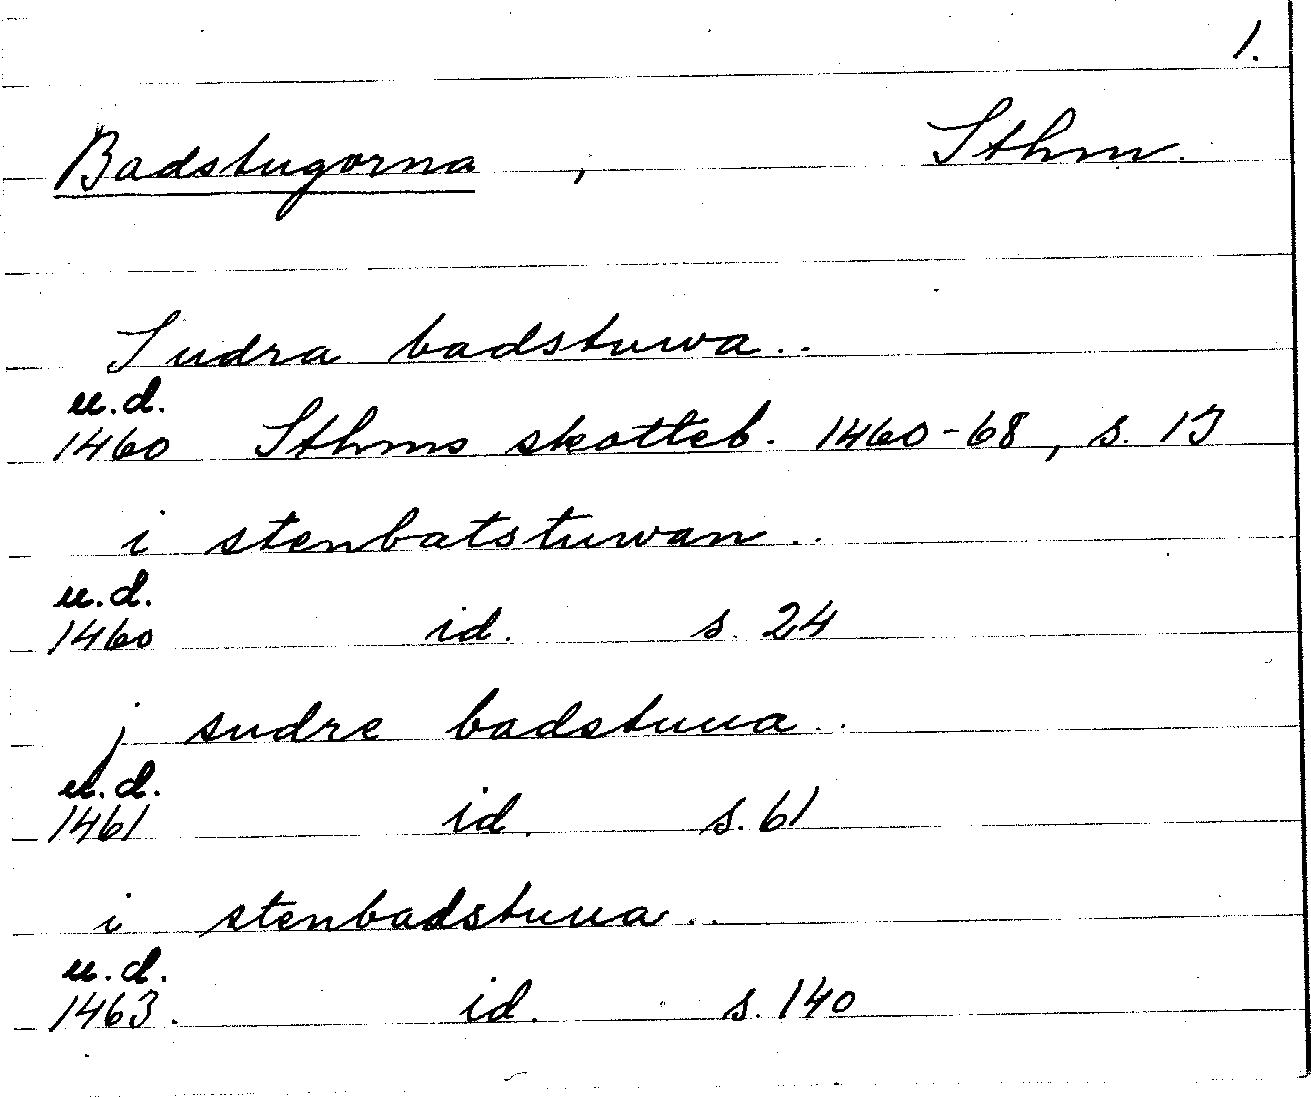 1.
Badstugorna , Sthm.
Sudra badstuwa..
u.d.
1460 Sthms skotteb. 1460-68, s. 13
i stenbatstuwan..
u.d.
1460 id. s. 24
j sudre badstuua..
u.d.
1461 id. s. 61
i stenbadstuua..
u.d.
1463. id. s. 140